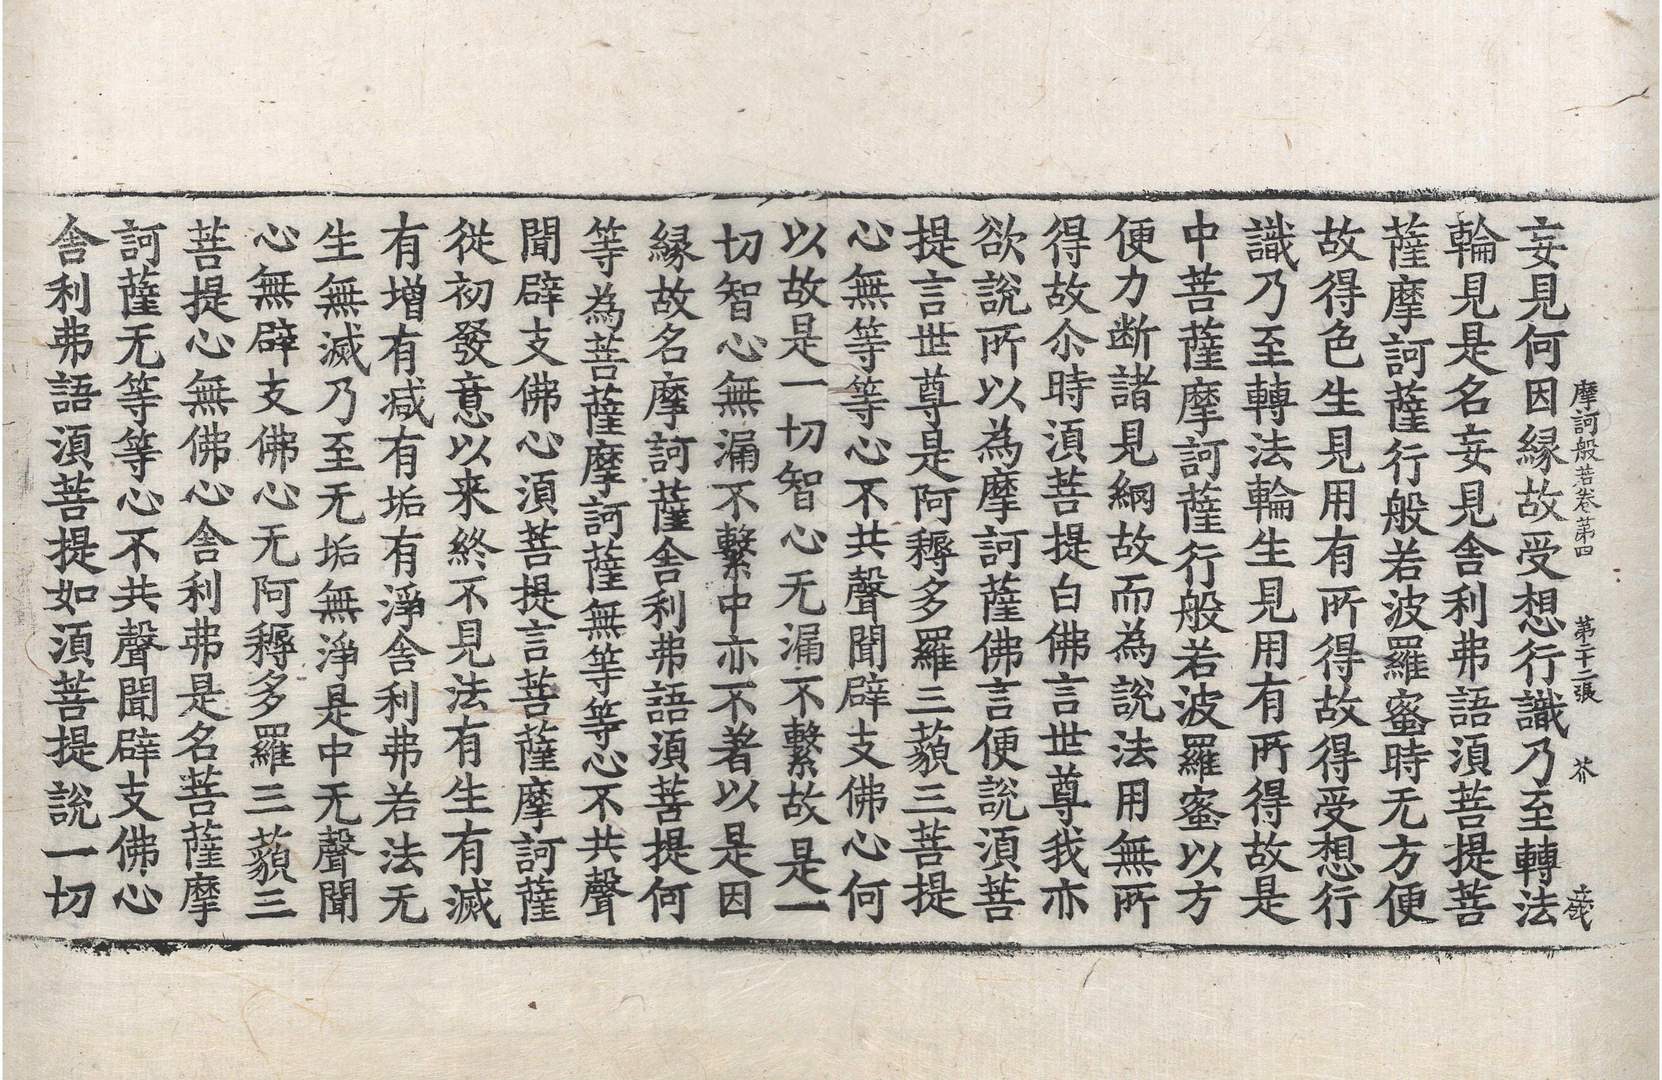 摩訶般若卷第四　第二十二張　芥
妄見何因縁故受想行識乃至轉法
輪見是名妄見舍利弗語湏菩提菩
薩摩訶薩行般若波羅蜜時无方便
故得色生見用有所得故得受想行
識乃至轉法輪生見用有所得故是
中菩薩摩訶薩行般若波羅蜜以方
便力断諸見綱故而為說法用無所
得故尒時湏菩提白佛言世尊我亦
欲說所以為摩訶薩佛言便說湏菩
提言世尊是阿耨多羅三藐三菩提
心無等等心不共聲聞辟支佛心何
以故是一切智心无漏不繫故是一
切智心無漏不繫中亦不著以是因
縁故名摩訶薩舍利弗語湏菩提何
等為菩薩摩訶薩無等等心不共聲
聞辟支佛心湏菩提言菩薩摩訶薩
從初發意以来終不見法有生有滅
有增有减有垢有淨舍利弗若法无
生無滅乃至无垢無淨是中无聲聞
心無辟支佛心无阿耨多羅三藐三
菩提心無佛心舍利弗是名菩薩摩
訶薩无等等心不共聲聞辟支佛心
舍利弗語湏菩提如湏菩提說一切